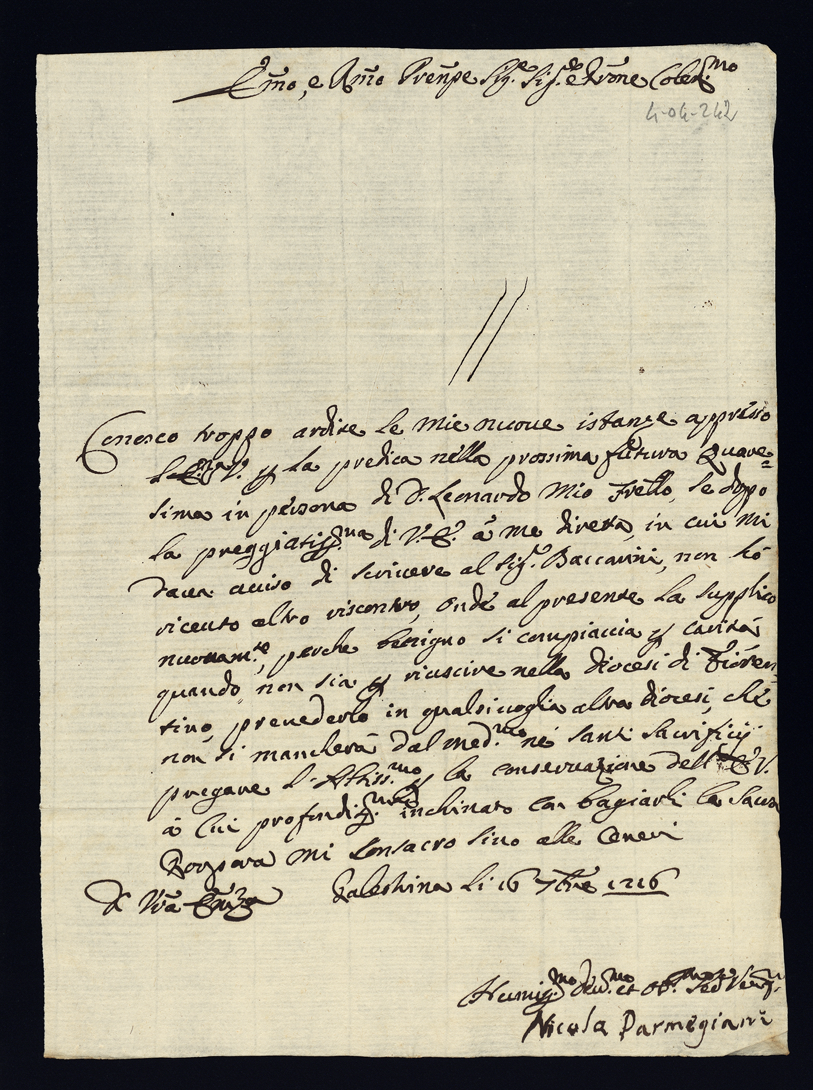 Em̃o, e Rm̃o Prenpe Sig.r Sig.r e Prōne Colen.mo
4-04-242
Conosco troppo ardite le mie nuove istanze appresso
l'E.V. p la predica nella prossima futura Quare=
sima in persona di D. Leonardo mio Frello, se dopo
la preggiatis.ma di V.E. à me diretta, in cui mi
dava aviso di scrivere al Sig.r Baccarini, non hò
ricevto altro riscontro, onde al presente la supplico
nuovam.te, perche benigno si compiaccia p carità
quando non sia p riuscire nella diocesi di Fioren
tino, prevederlo in qualsivoglia altra diocesi, che
non si mancherà dal med.mo ne santi sacrificij
pregare l'Altiss.mo p la conservazione dell'E.V.
à cui profondis.te inchinato con bagiarli la sacra
Porpora mi consacro sino alle ceneri
D Vr̃a Em̃za Palestrina li 16 7bre 1716
Humiliss.mo dev.mo et Obl.mo
Nicola Parmegiani